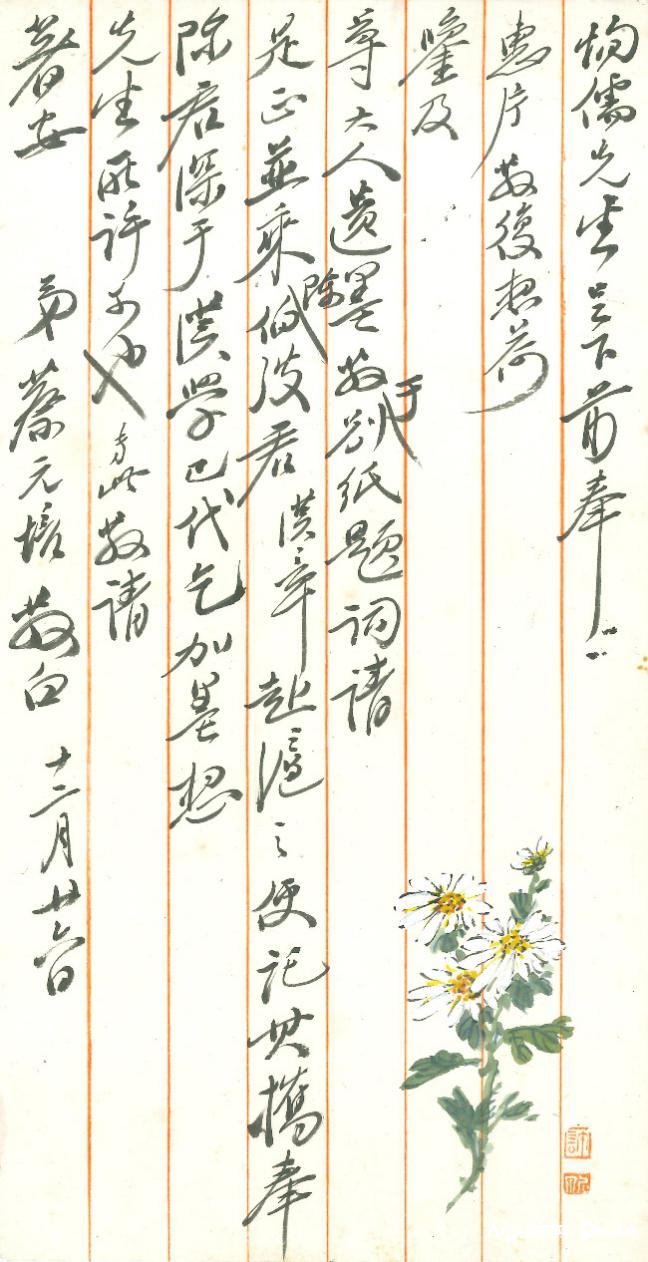 炯儒先生足下前奉
惠片敬復想荷
鑒及
尊大人遺墨敬于別紙題詞請
是正並乘陳伯陂君漢章赴滬之便託其攜奉
陳君深于漢學已代乞加墨想
先生所許可也專此敬請
著安 弟蔡元培敬白 十二月廿六日